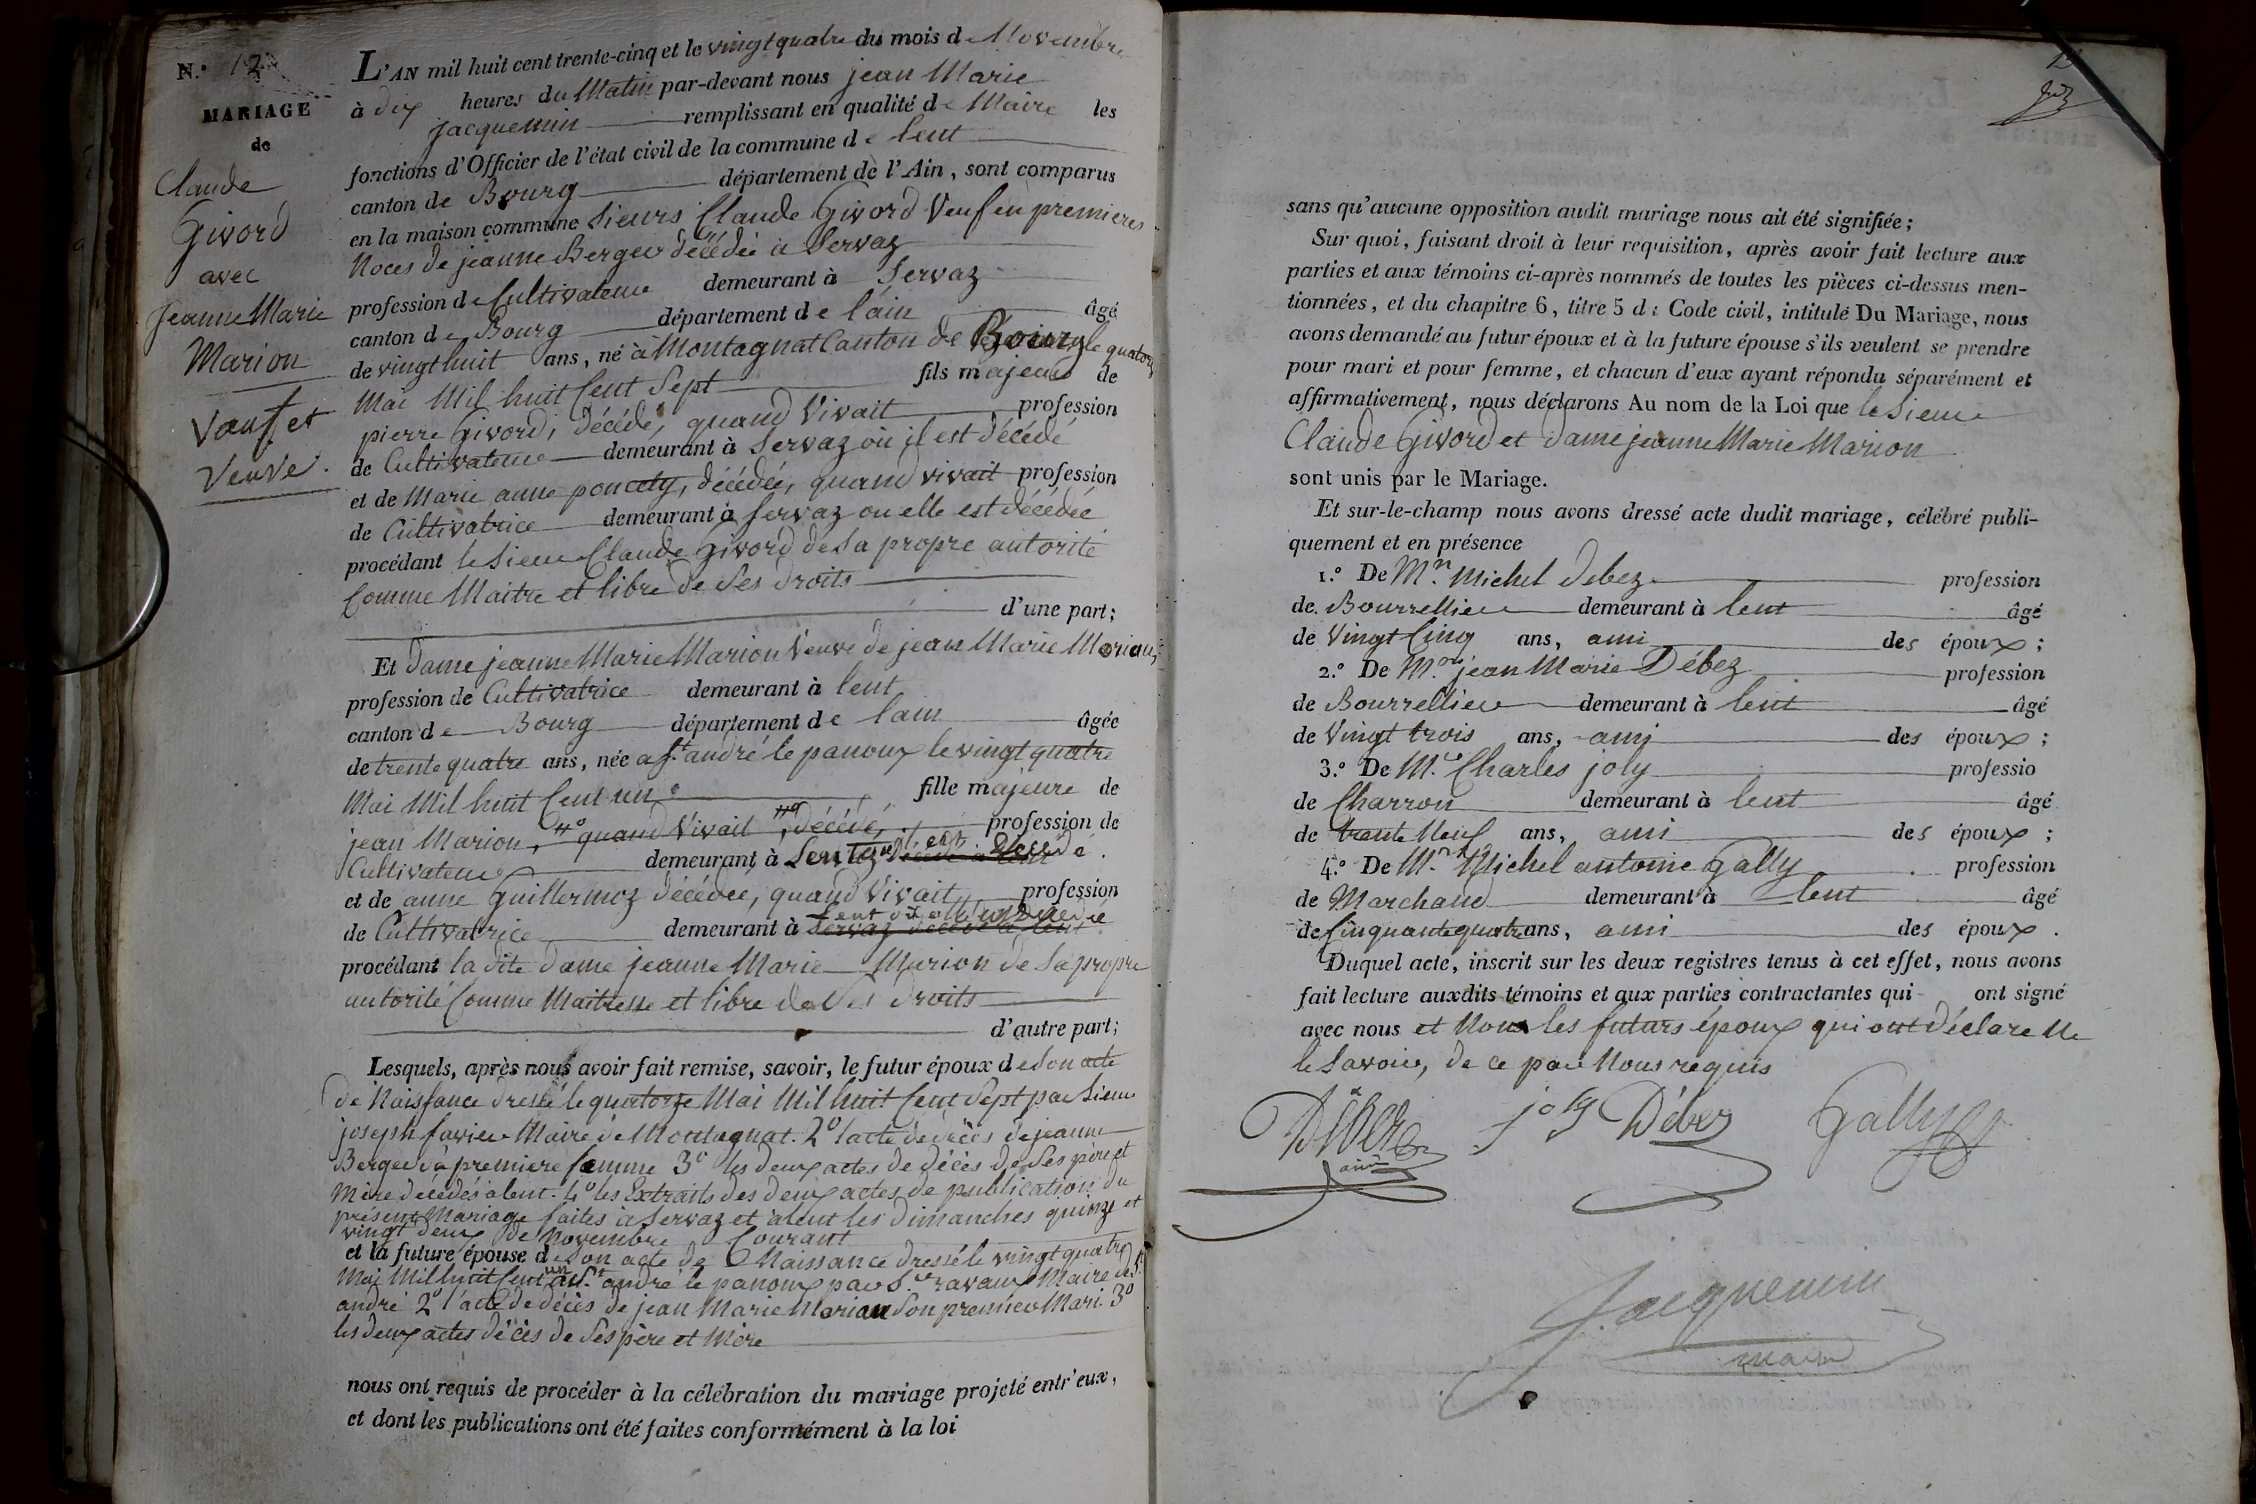 N.° 12
MARIAGE
de
Claude
Givord
avec
Jeanne Marie
Marion
Vœuf et
Veuve.
L'AN mil huit cent trente-cinq et le vingt quatre du mois de Novembre
à dix heures du Matin par-devant nous jean Marie
jacquemin remplissant en qualité de Maire les
fonctions d'Officier de l'état civil de la commune de lent
canton de Bourg département de l'Ain, sont comparus
en la maison commune sieurs Claude Givord Veuf en premieres
Noces de jeanne Berger décédée à Servaz
profession de Cultivateur demeurant à Servaz
canton de Bourg département de l'ain âgé
de vingt huit ans, né à Montagnat Canton de Bourg le quatorze
Mai Mil huit Cent Sept fils majeur de
pierre Givord, décédé, quand Vivait profession
de Cultivateur demeurant à Servaz où il est décédé
et de Marie anne poncety, décédée, quand vivait profession
de Cultivatrice demeurant à Servaz ou elle est décédée
procédant le sieur Claude Givord de sa propre autorité
Comme Maitre et libre de ses droits
d'une part;
Et dame jeanne Marie Marion Veuve de jean Marie Morian,
profession de Cultivatrice demeurant à lent
canton de Bourg département de l'ain âgée
de trente quatre ans, née a St. andré le panoux le vingt quatre
Mai Mil huit Cent un fille majeure de
jean Marion, quand Vivait, décédé, profession de
Cultivateur demeurant à
et de anne Guillermoz décédée, quand Vivait profession
de Cultivatrice demeurant à lent où elle est décédée
procédant la dite dame jeanne Marie Marion de sa propre
autorité Comme Maitresse et libre de ses droits
d'autre part;
Lesquels, après nous avoir fait remise, savoir, le futur époux de son acte
de Naissance dressé le quatorze Mai Mil huit Cent Sept par Sieur
joseph favier Maire de Montagnat. 2° l'acte de décès de jeanne
Berger sa premiere femme 3° les deux actes de décès de Ses père et
Mère décédés a lent. 4° les Extraits des deux actes de publication du
présent Mariage faites à Servaz et à lent les dimanches quinze et
vingt deux de Novembre Courant
et la future épouse de son acte de Naissance dressé le vingt quatre
Mai Mil huit Cent un a St. andré le panoux par Sr. ravaux Maire de St.
andré 2° l'acte de décès de jean Marie Morian Son premier Mari. 3°
les deux actes décès de Ses père et Mère
nous ont requis de procéder à la célébration du mariage projeté entr'eux,
et dont les publications ont été faites conformément à la loi
sans qu'aucune opposition audit mariage nous ait été signifiée;
Sur quoi, faisant droit à leur requisition, après avoir fait lecture aux
parties et aux témoins ci-après nommés de toutes les pièces ci-dessus men-
tionnées, et du chapitre 6, titre 5 du Code civil, intitulé Du Mariage, nous
avons demandé au futur époux et à la future épouse s'ils veulent se prendre
pour mari et pour femme, et chacun d'eux ayant répondu séparément et
affirmativement, nous déclarons Au nom de la Loi que le sieur
Claude Givord et dame jeanne Marie Marion
sont unis par le Mariage.
Et sur-le-champ nous avons dressé acte dudit mariage, célébré publi-
quement et en présence
1.° De Mr. Michel Debez profession
de Bourrellier demeurant à lent âgé
de Vingt Cinq ans, ami des époux;
2.° De Mr. jean Marie Débez profession
de Bourrellier demeurant à lent âgé
de Vingt trois ans, ami des époux;
3.° De Mr. Charles joly professio
de Charron demeurant à lent âgé
de trente Neuf ans, ami des époux;
4.° De Mr. Michel antoine Gally profession
de Marchand demeurant à lent âgé
de Cinquante quatre ans, ami des époux.
Duquel acte, inscrit sur les deux registres tenus à cet effet, nous avons
fait lecture auxdits témoins et aux parties contractantes qui ont signé
avec nous et Non les futurs époux qui ont déclaré Ne
le Savoir, de ce par Nous requis
Débez joly Débez Gally
ainé
Jacquemin
maire